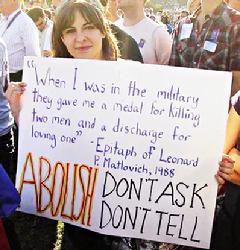 "When I was in the military
they gave me a medal for killing
two men and a discharge for
loving one" - Epitaph of Leonard
P. Matlovich, 1988
ABOLISH DON'T ASK
DON'T TELL